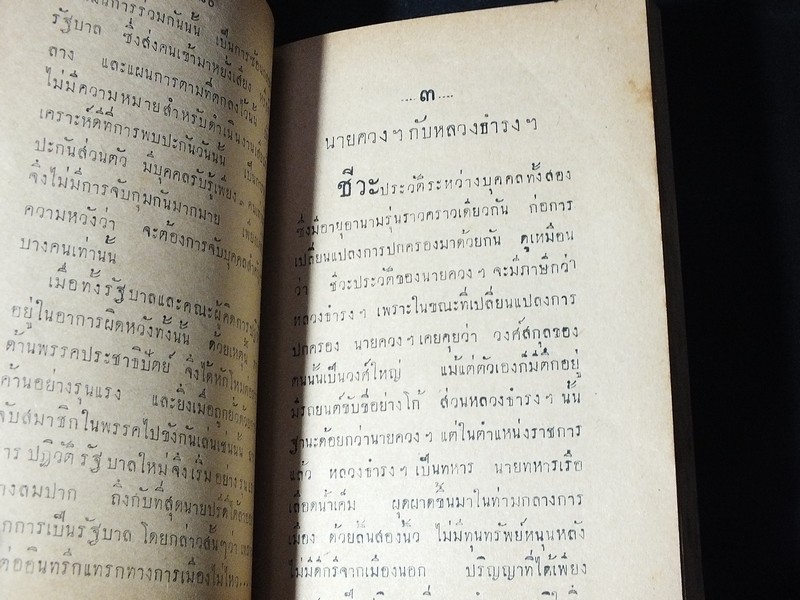 แผนการรวมกันนั้น เป็นการซ้อม
รัฐบาล ซึ่งส่งคนเข้ามาหยั่งเสียง
ลาง และแผนการตามที่ตกลงไว้นั้น
ไม่มีความหมายสำหรับดำเนินงาน
เคราะห์ดีที่การพบปะกันวันนั้น เป็น
ปะกันส่วนตัว มีบุคคลรับรู้เพียง
จึงไม่มีการจับกุมกันมากมาย
ความหวังว่า จะต้องการจับบุคคล
บางคนเท่านั้น
เมื่อทั้งรัฐบาลและคณะผู้คิดการ
อยู่ในอาการผิดหวังทั้งนั้น ด้วยเหตุ
ด้านพรรคประชาธิปัตย์ จึงได้หักโหม
ค้านอย่างรุนแรง และยิ่งเมื่อถูกยั่วด้วย
จับสมาชิกในพรรคไปขังกันเล่นเช่นนั้น
การ ปฏิวัติ รัฐบาลใหม่จึงเริ่ม อย่าง
ลมปาก ถึงกับที่สุดนายปรีดีได้
การเป็นรัฐบาล โดยกล่าวสั้นๆว่า
ต่ออินทรีกแทรกทางการเมืองไม่ไหว...
.... ๓ ....
นายควงฯ กับหลวงธำรงฯ
ชีวะประวัติระหว่างบุคคลทั้งสอง
ซึ่งมีอายุอานามรุ่นราวคราวเดียวกัน ก่อการ
เปลี่ยนแปลงการปกครองมาด้วยกัน ดูเหมือน
ว่า ชีวะประวัติของนายควงฯ จะมีภาษีกว่า
หลวงธำรงฯ เพราะในขณะที่เปลี่ยนแปลงการ
ปกครอง นายควงฯ เคยคุยว่า วงศ์สกุลของ
ตนนั้นเป็นวงศ์ใหญ่ แม้แต่ตัวเองก็มีตึกอยู่
มีรถยนต์ขับขี่อย่างโก้ ส่วนหลวงธำรงฯ นั้น
ฐานะด้อยกว่านายควงฯ แต่ในตำแหน่งราชการ
แล้ว หลวงธำรงฯ เป็นทหาร นายทหารเรือ
เลือดน้ำเค็ม ผุดผาดขึ้นมาในท่ามกลางการ
เมือง ด้วยลิ้นสองนิ้ว ไม่มีทุนทรัพย์หนุนหลัง
ไม่มีดีกรีจากเมืองนอก ปริญญาที่ได้เพียง